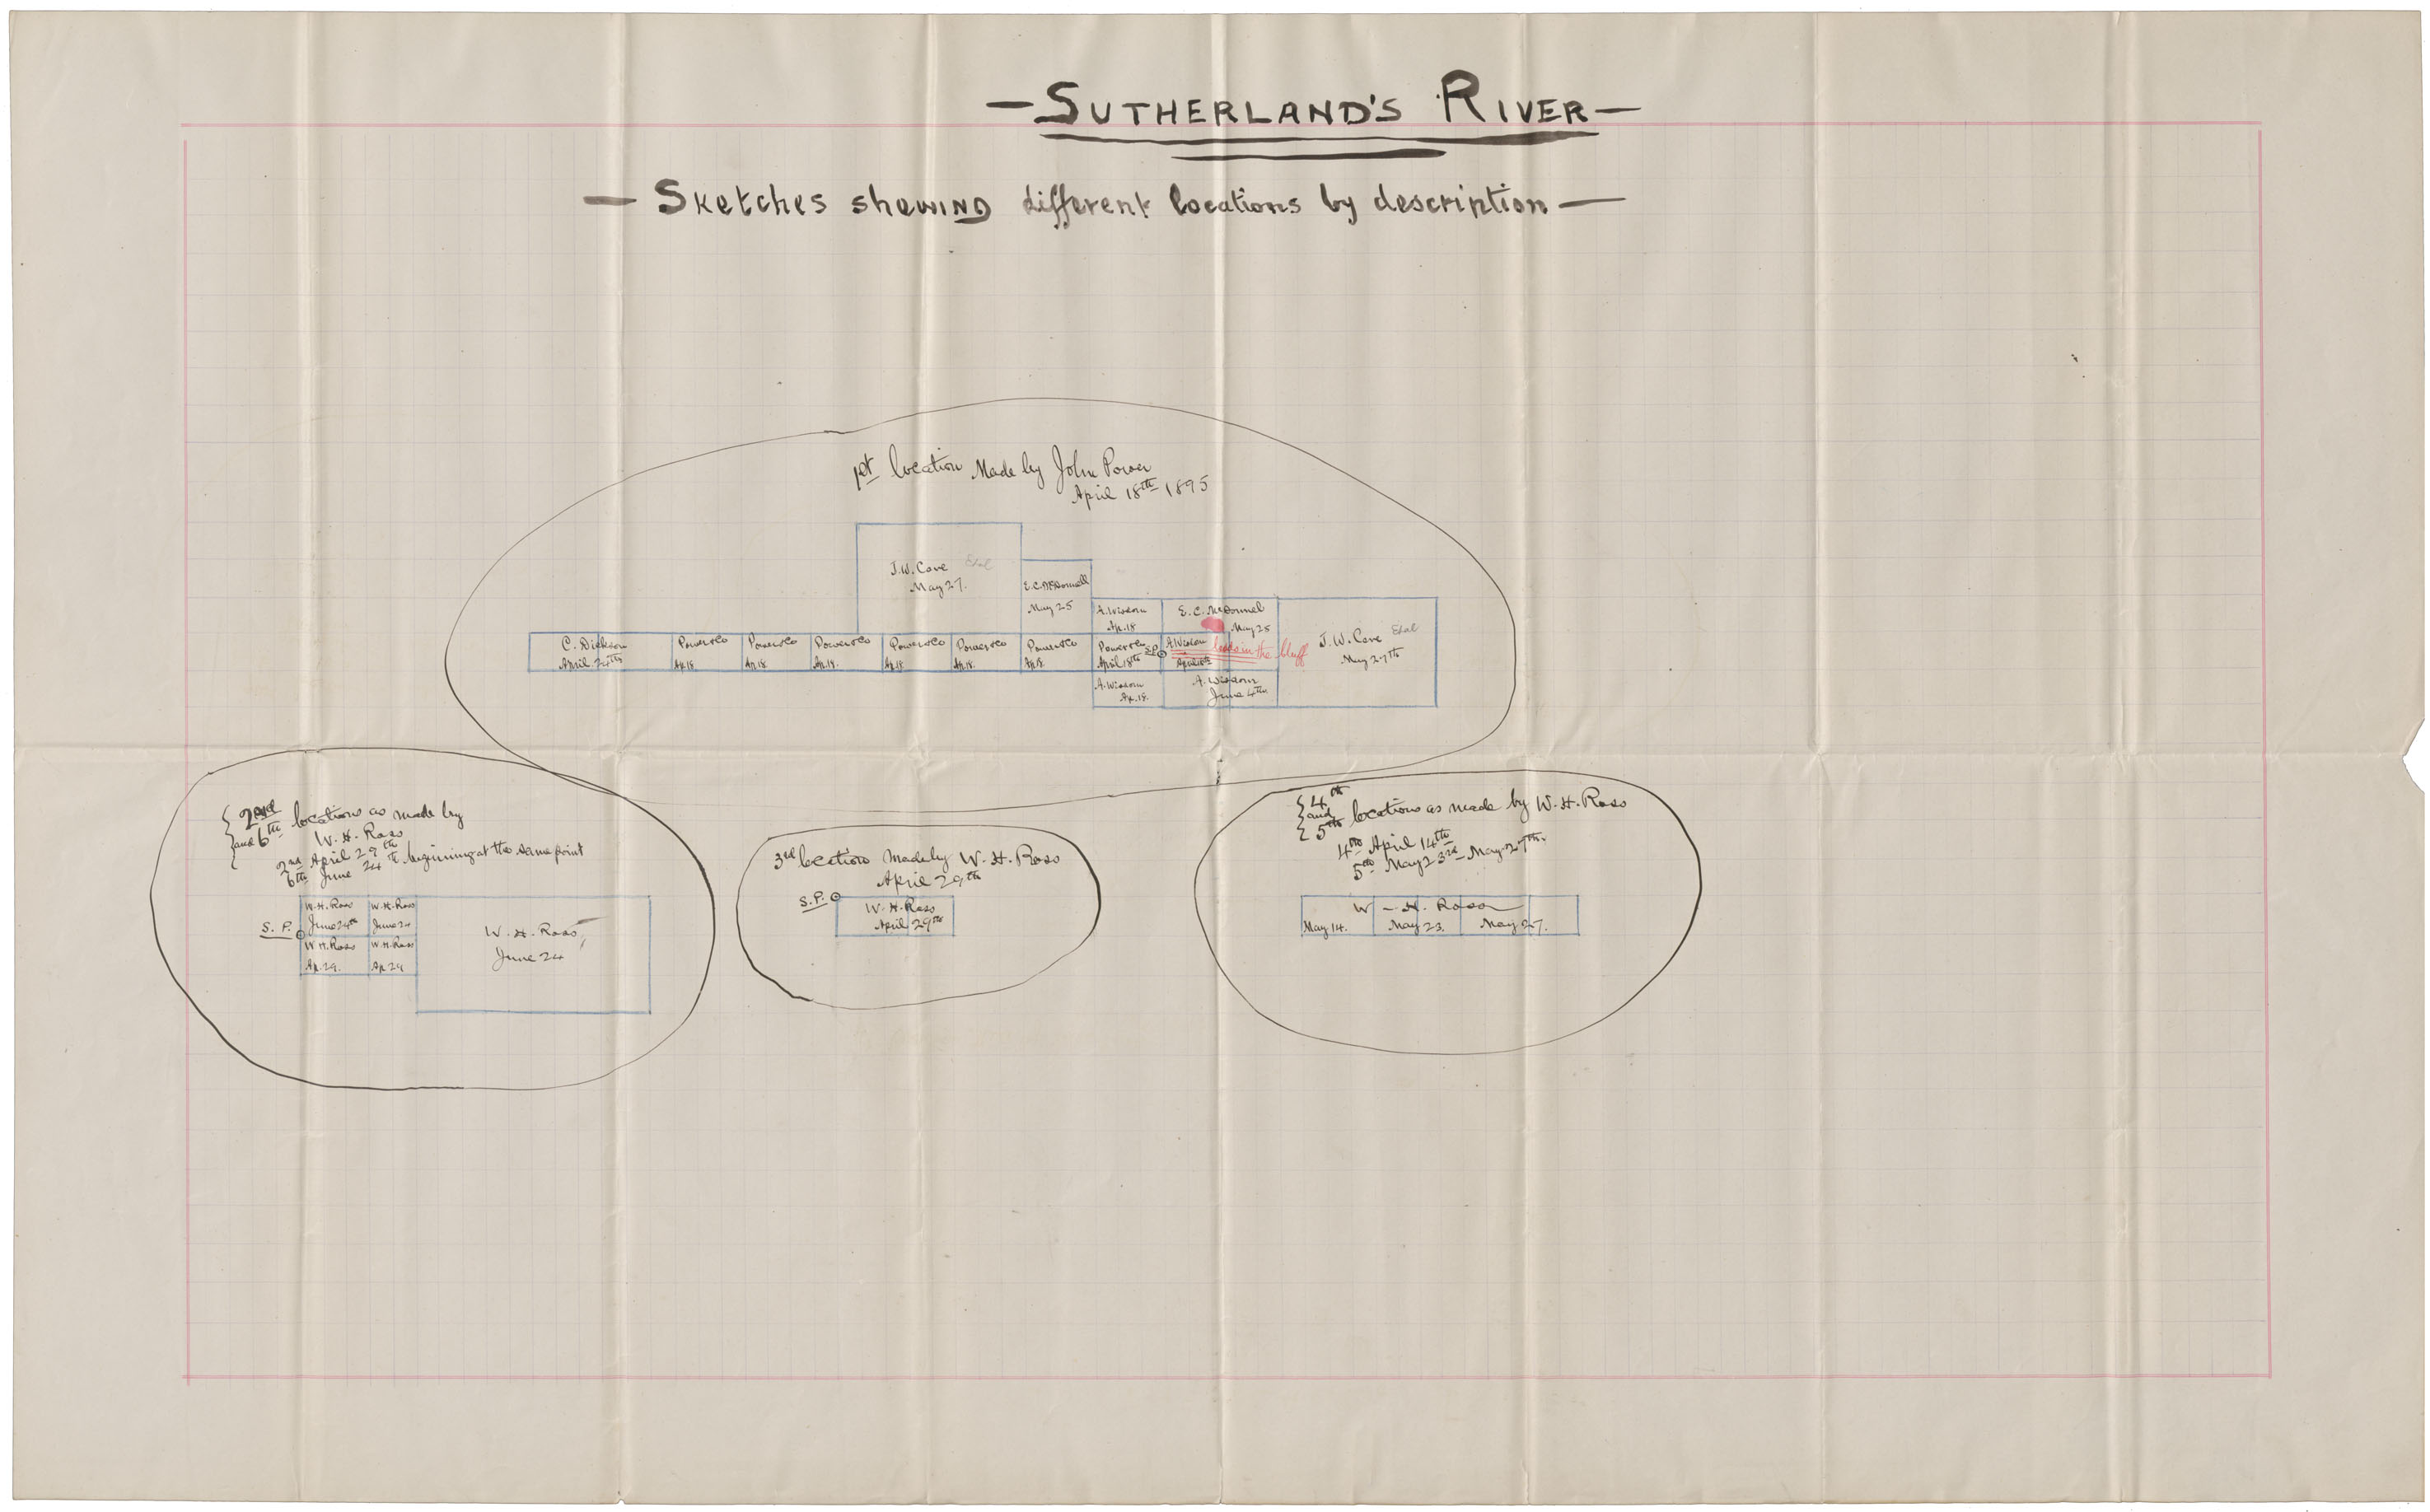 — SUTHERLAND'S RIVER —
— Sketches shewing different locations by description —
1st location Made by John Power
April 18th 1895
J.W. Cove Etal
May 27.
E.C. McDonnell
May 25
A. Wisdom
Ap. 18
E. C. McDonnel
May 25
C. Dickson
April 24th
Power & Co
Ap. 18.
Power & Co
Ap. 18.
Power & Co
Ap. 18.
Power & Co
Ap. 18
Power & Co
Ap. 18.
Power & Co
Ap. 18.
Power & Co
April 18th
S.P.
A. Wisdom
April 18th
in the bluff
J. W. Cove Etal
May 27th
A. Wisdom
Ap. 18.
A. Wisdom
June 4th
2nd
and 6th locations as made by
W. H. Ross
2nd April 29th
6th June 24th beginning at the same point
S. P.
W. H. Ross
June 24th
W. H. Ross
June 24
W. H. Ross
Ap. 29.
W. H. Ross
Ap 29
W. H. Ross
June 24
3rd location made by W. H. Ross
April 29th
S.P.
W. H. Ross
April 29th
4th
and
5th locations as made by W. H. Ross
4th April 14th
5th May 23rd - May 27th.
W - H. Ross
May 14.
May 23.
May 27.